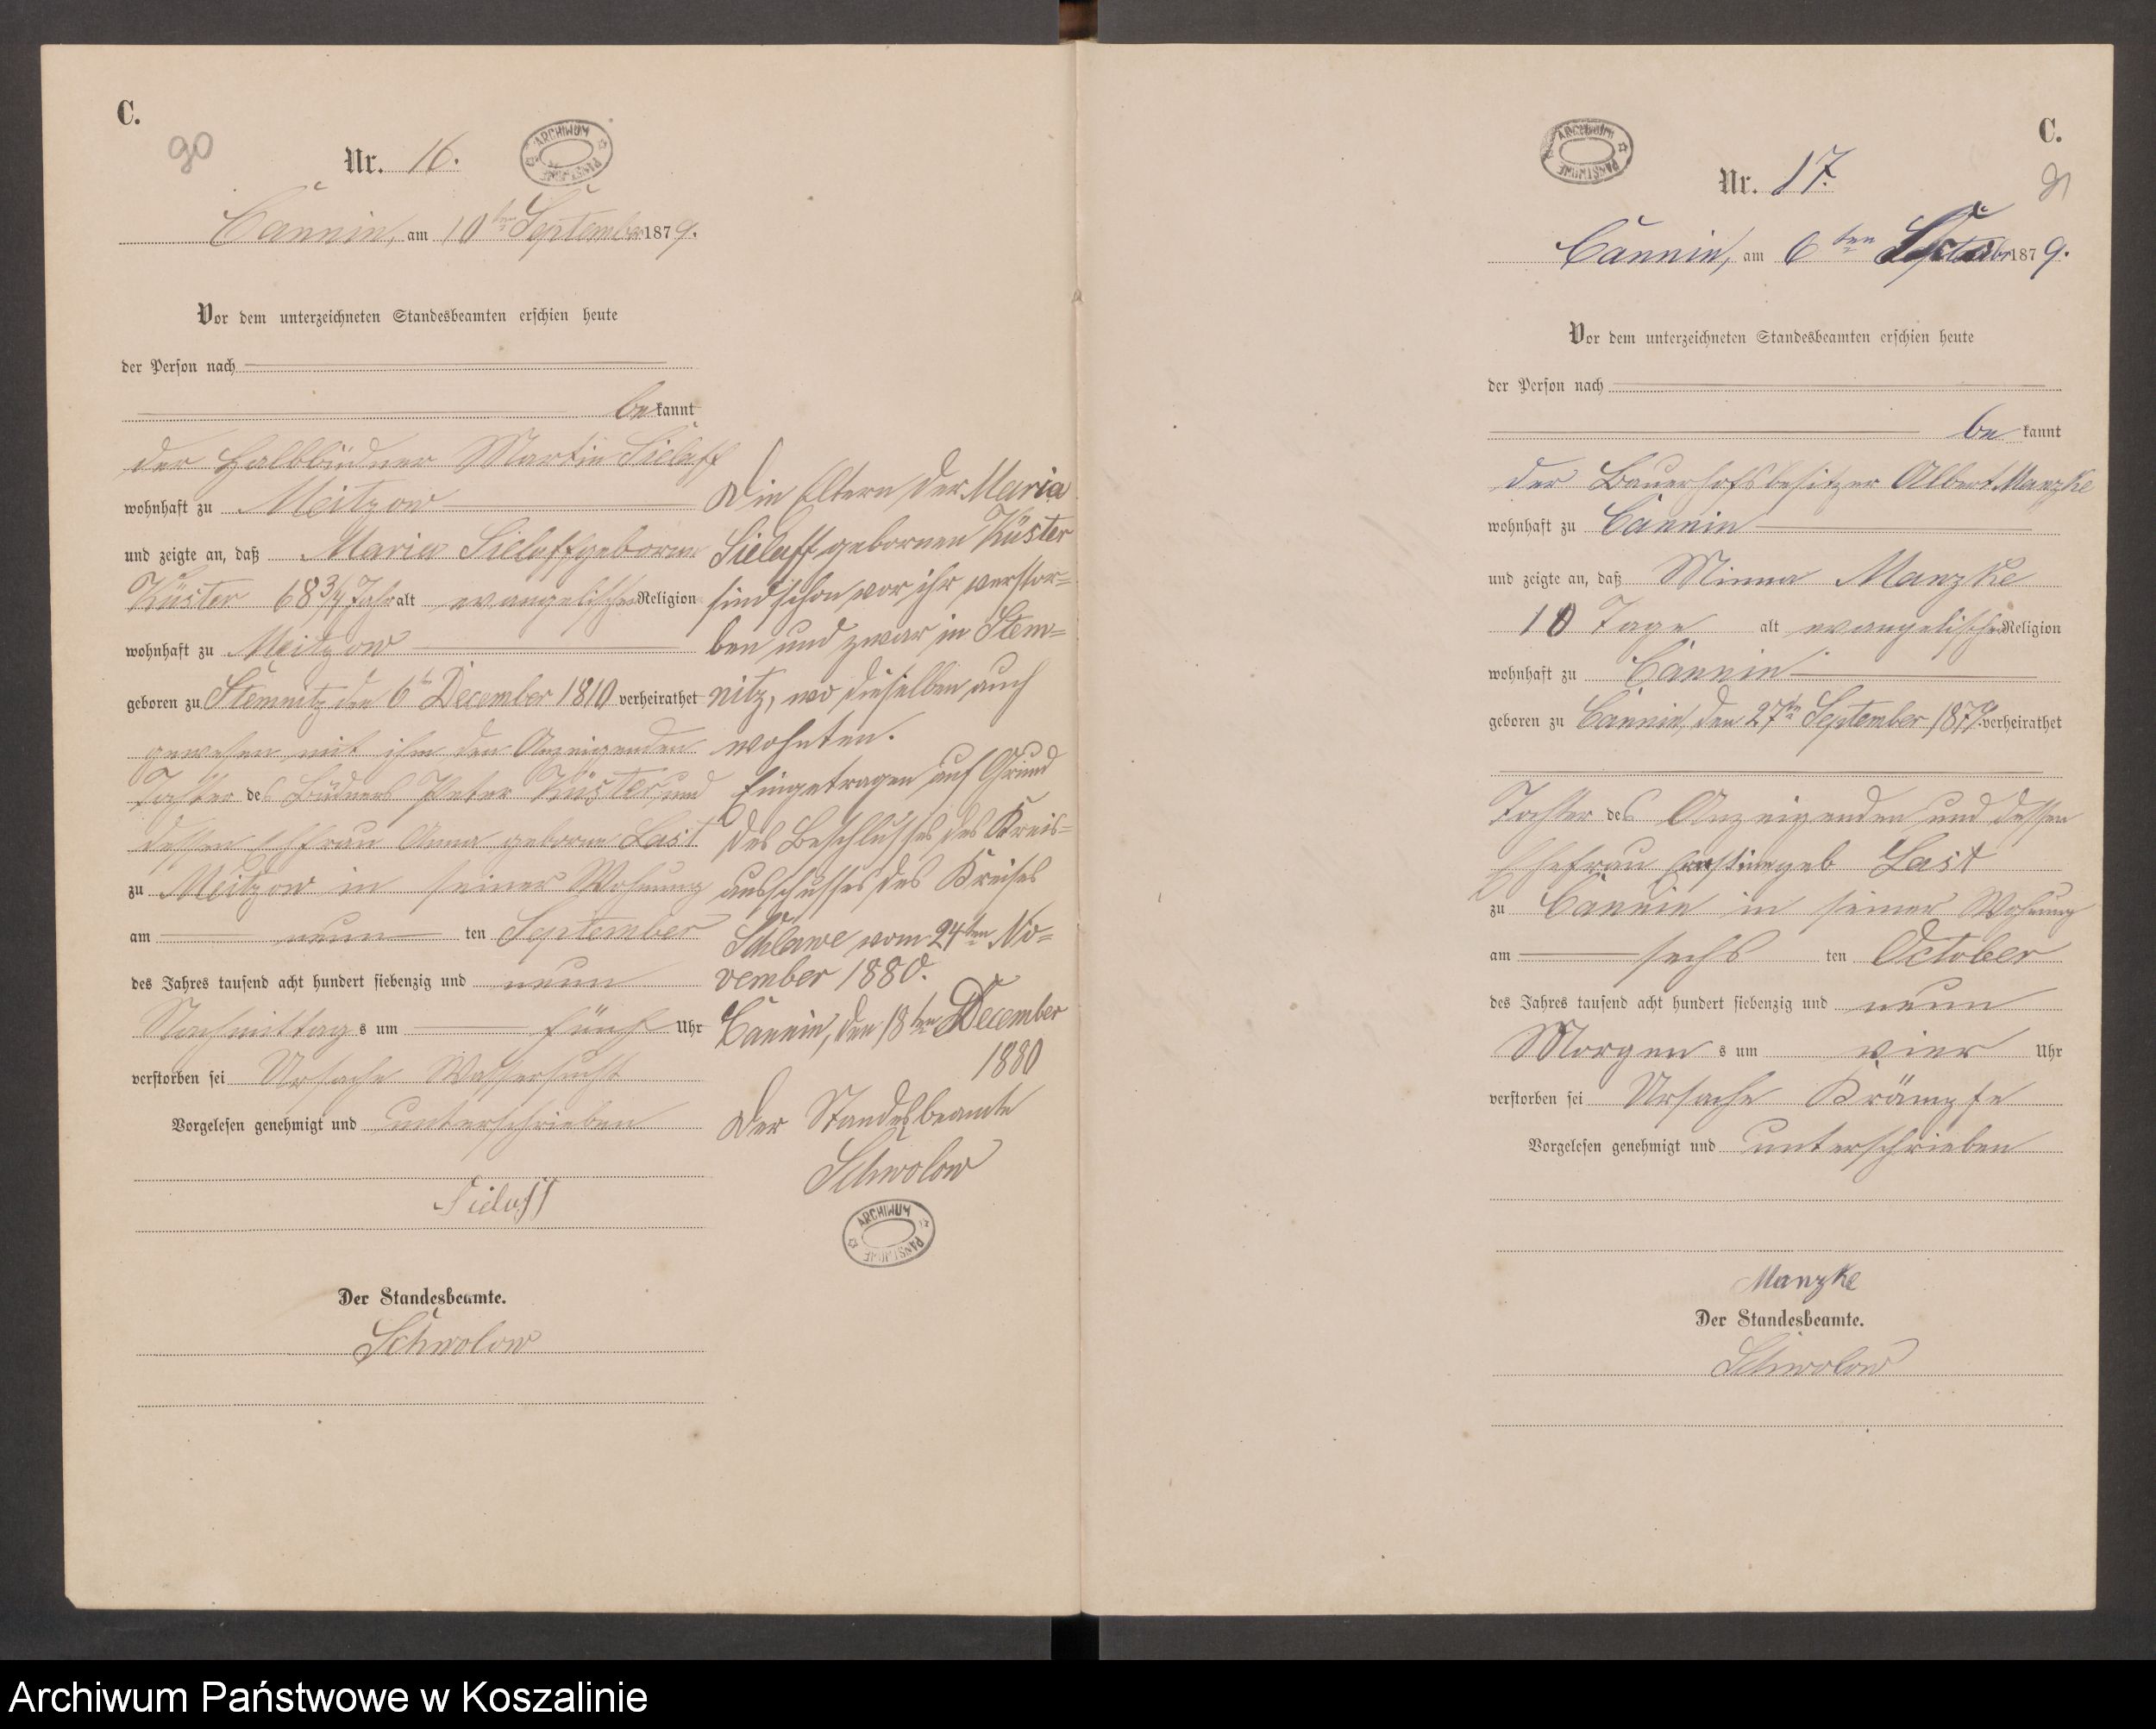 C.
90
Nr. 16.
ARCHIWUM PAŃSTWOWE
Cannin, am 10ten September 1879.
Vor dem unterzeichneten Standesbeamten erschien heute
der Person nach
bekannt
der Halbbüdner Martin Sielaff
wohnhaft zu Meitzow
und zeigte an, daß Maria Sielaff geborne
Küster 68 3/4 Jahr alt evangelischer Religion
wohnhaft zu Meitzow
geboren zu Stemnitz den 6ten December 1810 verheirathet
gewesen mit ihm den Anzeigenden
Tochter des Büdners Peter Küster und
dessen Ehefrau Anna geborne Last
zu Meitzow in seiner Wohnung
am neun ten September
des Jahres tausend acht hundert siebenzig und neun
Nachmittags um fünf Uhr
verstorben sei Ursache Wassersucht
Vorgelesen genehmigt und unterschrieben
Sielaff
Der Standesbeamte.
Schwolow
Die Eltern der Maria
Sielaff gebornen Küster
sind schon vor ihr verstor=
ben und zwar in Stem=
nitz, wo dieselben auch
wohnten.
Eingetragen auf Grund
des Beschlusses des Kreis=
ausschusses des Kreises
Schlawe vom 24ten No=
vember 1880.
Cannin, den 18ten December
1880
Der Standesbeamte
Schwolow
ARCHIWUM PAŃSTWOWE
ARCHIWUM PAŃSTWOWE
C.
91
Nr. 17.
Cannin, am 6ten October 1879.
Vor dem unterzeichneten Standesbeamten erschien heute
der Person nach
be kannt
der Bauerhofsbesitzer Albert Manzke
wohnhaft zu Cannin
und zeigte an, daß Minna Manzke
10 Tage alt evangelischer Religion
wohnhaft zu Cannin
geboren zu Cannin, den 27ten September 1879 verheirathet
Tochter des Anzeigenden und dessen
Ehefrau geb Last
zu Cannin in seiner Wohnung
am sechs ten October
des Jahres tausend acht hundert siebenzig und neun
Morgens um vier Uhr
verstorben sei Ursache Krämpfe
Vorgelesen genehmigt und unterschrieben
Manzke
Der Standesbeamte.
Schwolow
Archiwum Państwowe w Koszalinie